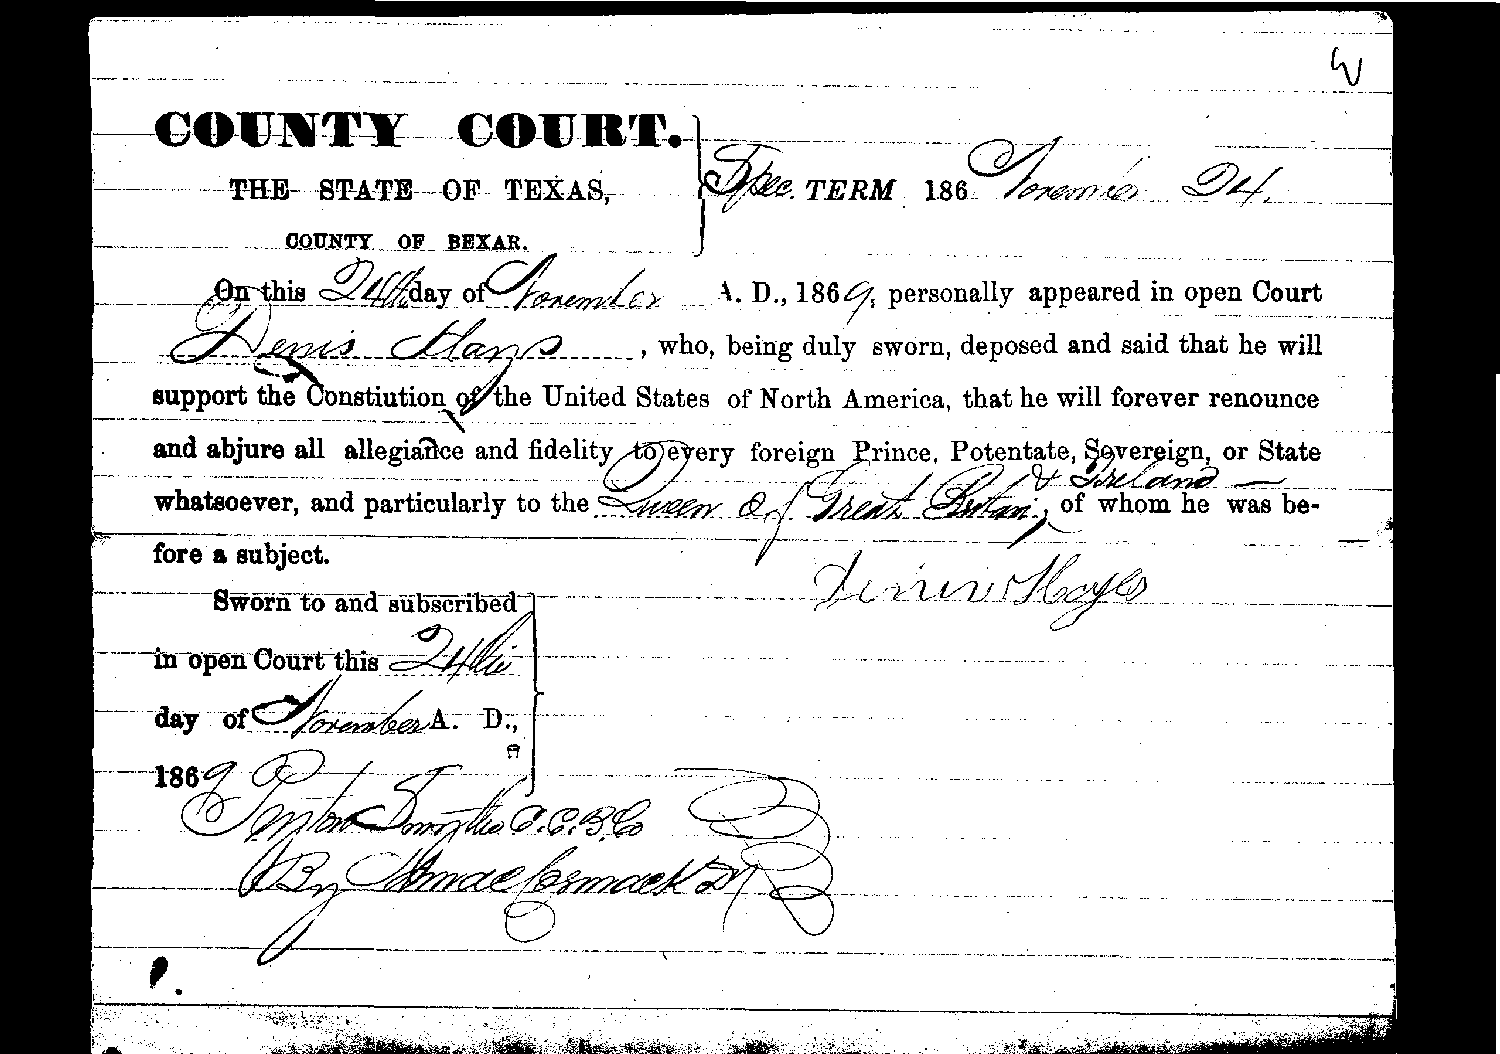 COUNTY COURT.
THE STATE OF TEXAS,
COUNTY OF BEXAR.
Spec. TERM 186 November 24.
On this 24th day of November A. D., 1869, personally appeared in open Court
Denis Hays, who, being duly sworn, deposed and said that he will
support the Constiution of the United States of North America, that he will forever renounce
and abjure all allegiance and fidelity to every foreign Prince, Potentate, Sovereign, or State
& Ireland —
whatsoever, and particularly to the Queen of Great Britain, of whom he was be-
fore a subject.
Hayes
Sworn to and subscribed
in open Court this 24th
day of November A. D.,
1869
Smythe C.C.B.Co
By